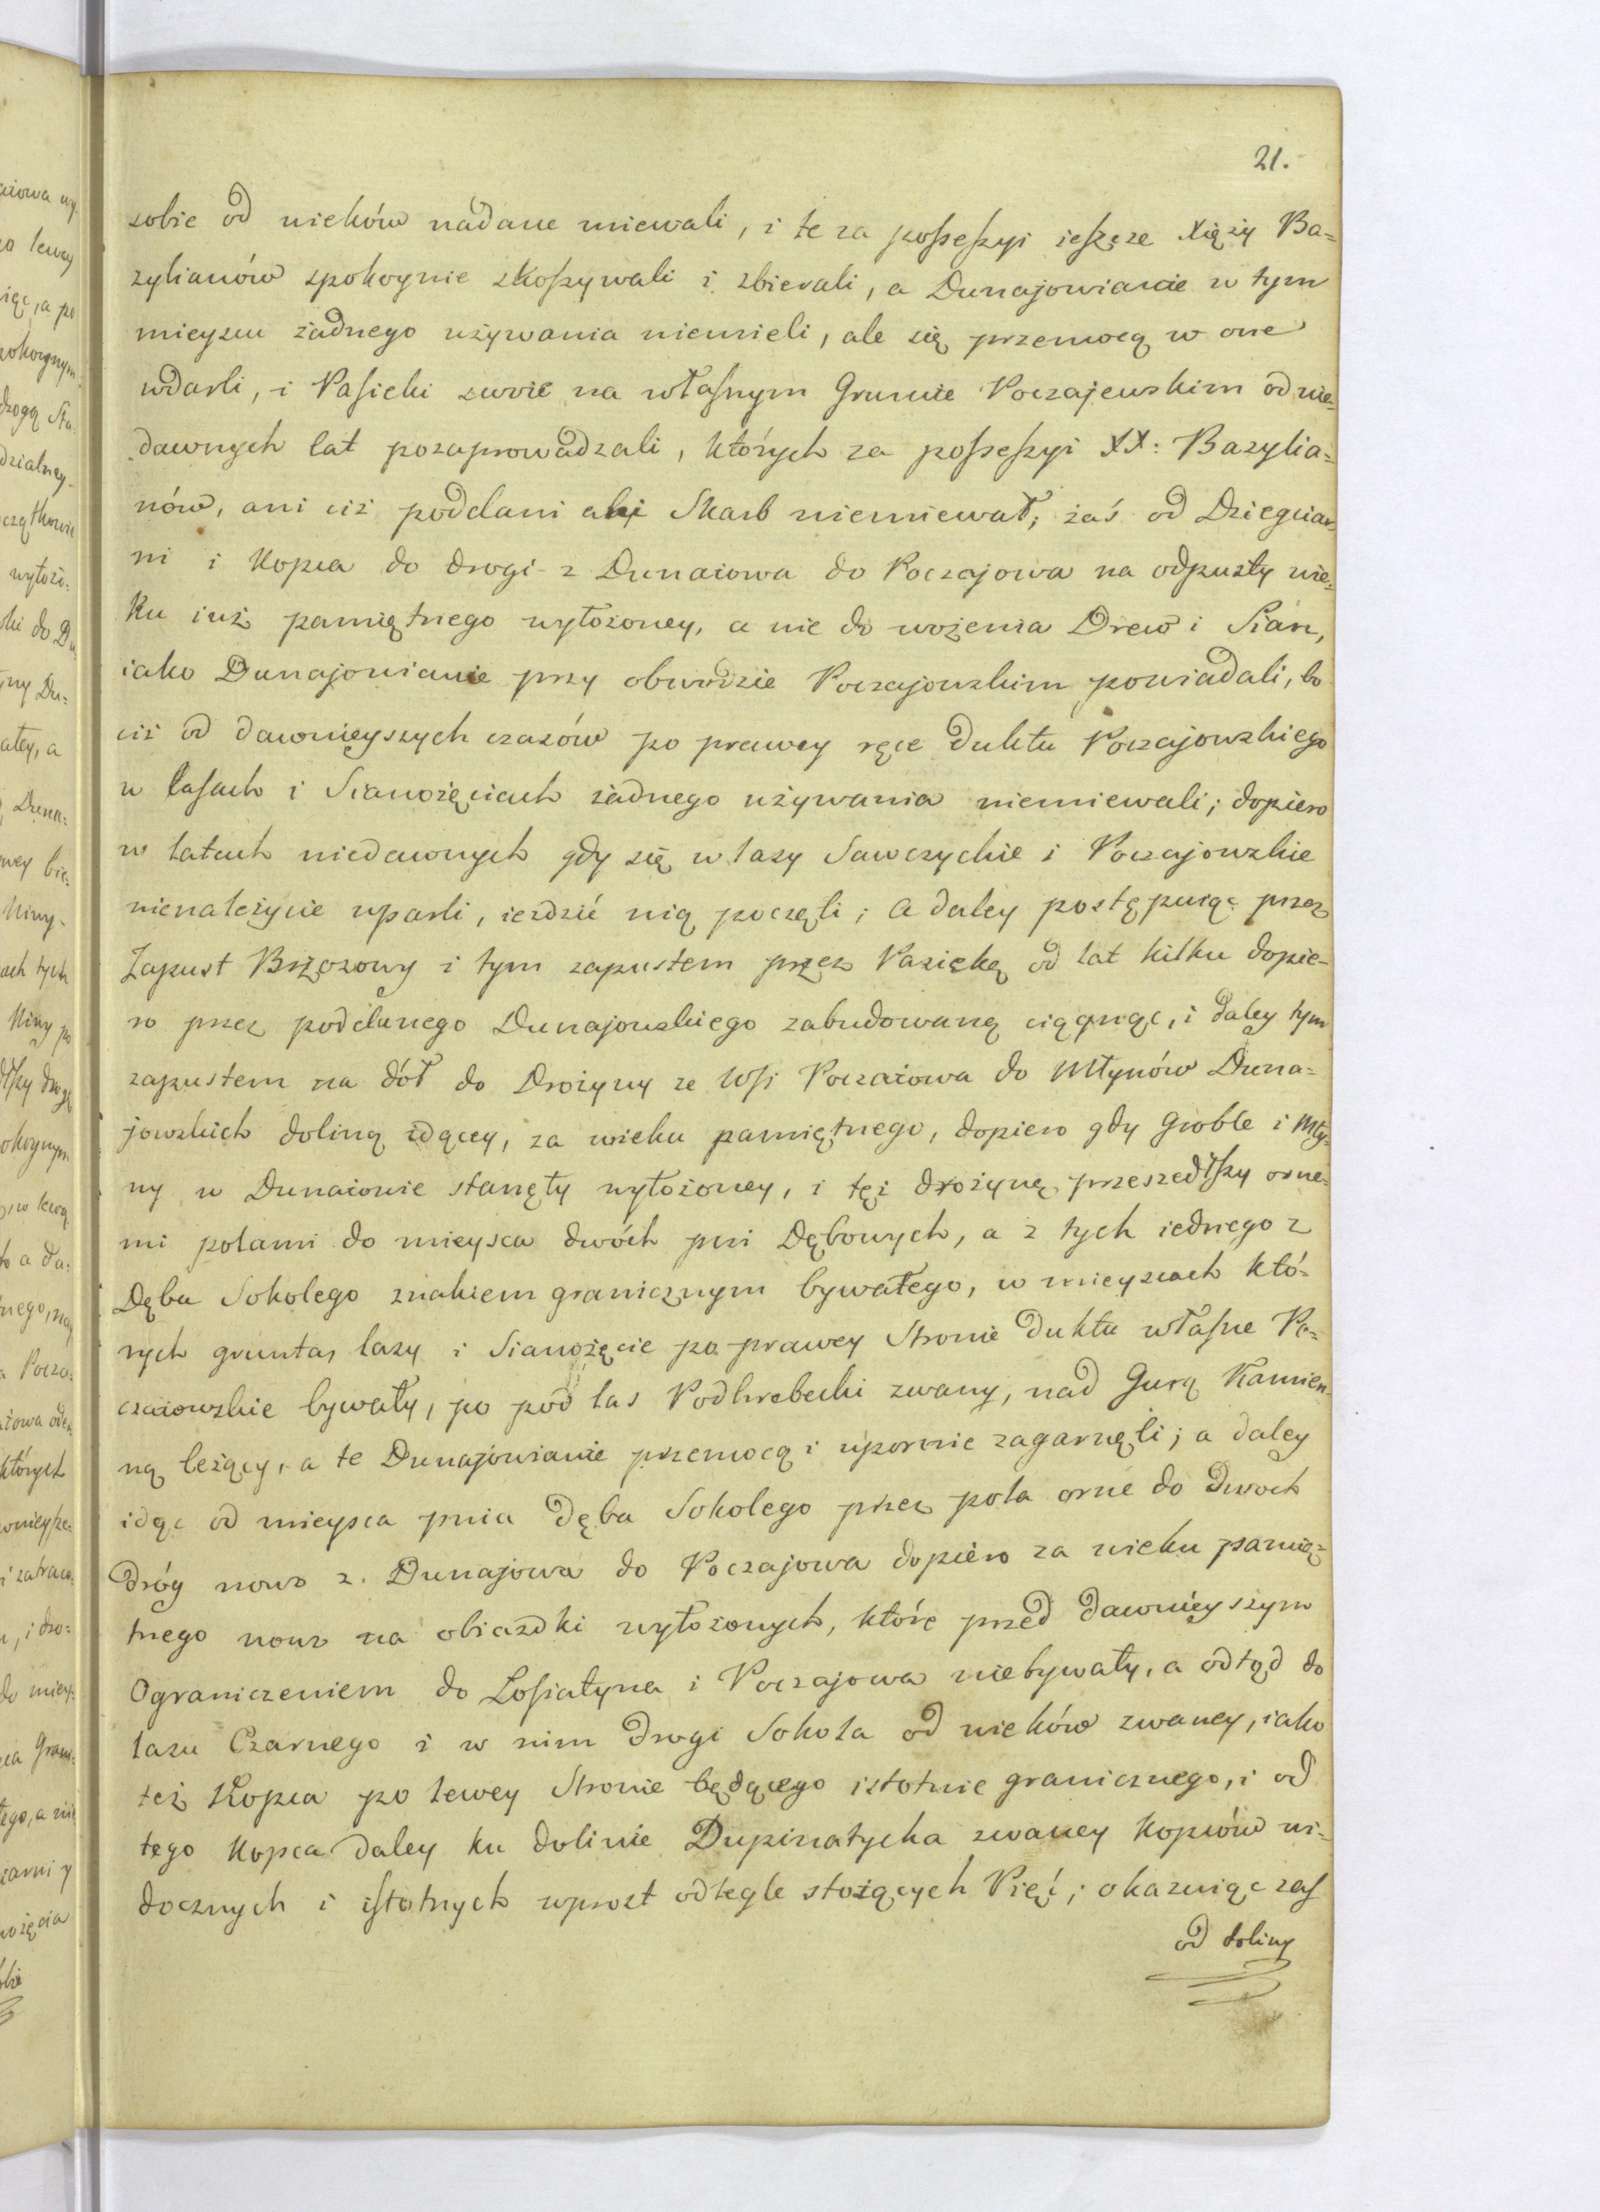 21.
sobie od wieków nadane miewali, i te za possessyi ieszcze Xięży Ba=
zylianów spokoynie zkoszywali i zbierali, a Dunajowianie w tym
mieyscu żadnego używania niemieli, ale się przemocą w one
wdarli, i Pasieki swoie na własnym Gruncie Poczajewskim od nie=
dawnych lat pozaprowadzali, których za possessyi XX: Bazylia=
nów, ani ciż poddani ani Skarb niemiewał; zaś od Dziegciar=
ni i Kopca do drogi z Dunaiowa do Poczajowa na odpusty wie=
ku iuż pamiętnego wyłożoney, a nie do wożenia Drew i Sian,
iako Dunajowianie przy obwodzie Poczajowskim powiadali, bo
ciż od dawnieyszych czasów po prawey ręce duktu Poczajowskiego
w lasach i Sianożęciach żadnego używania niemiewali; dopiero
w latach niedawnych gdy się w lasy Sawczyckie i Poczajowskie
nienależycie wparli, ieździć nią poczęli; a daley postępuiąc przez
Zapust Brzozowy i tym zapustem przez Pasiekę od lat kilku dopie=
ro przez poddanego Dunajowskiego zabudowaną ciągnąc, i daley tym
zapustem na dół do Drożyny ze Wsi Poczaiowa do Młynów Duna=
jowskich doliną idącey, za wieku pamiętnego, dopiero gdy Groble i Mły=
ny w Dunaiowie stanęły wyłożoney, i też drożynę przeszedłszy orne=
mi polami do mieysca dwóch pni Dębowych, a z tych iednego z
Dębu Sokolego znakiem granicznym bywałego, w mieyscach któ=
rych grunta, lasy i Sianożęcie po prawey Stronie duktu własne Po=
czaiowskie bywały, po pod las Podhrebecki zwany, nad Gurą Kamien=
ną leżący, a te Dunajowianie przemocą i upornie zagarnęli; a daley
idąc od mieysca pnia Dęba Sokolego przez pola orne do dwoch
dróg nowo z Dunajowa do Poczajowa dopiero za wieku pamię=
tnego nowo na obiazdki wyłożonych, które przed dawnieyszym
Ograniczeniem do Łosiatyna i Poczajowa niebywały, a odtąd do
lasu Czarnego i w nim drogi Sokoła od wieków zwaney, iako
też Kopca po lewey Stronie będącego istotnie granicznego, i od
tego Kopca daley ku dolinie Dupinatycha zwaney Kopców wi=
docznych i istotnych wprost odlegle stoiących Pięć; okazuiąc zaś
od doliny